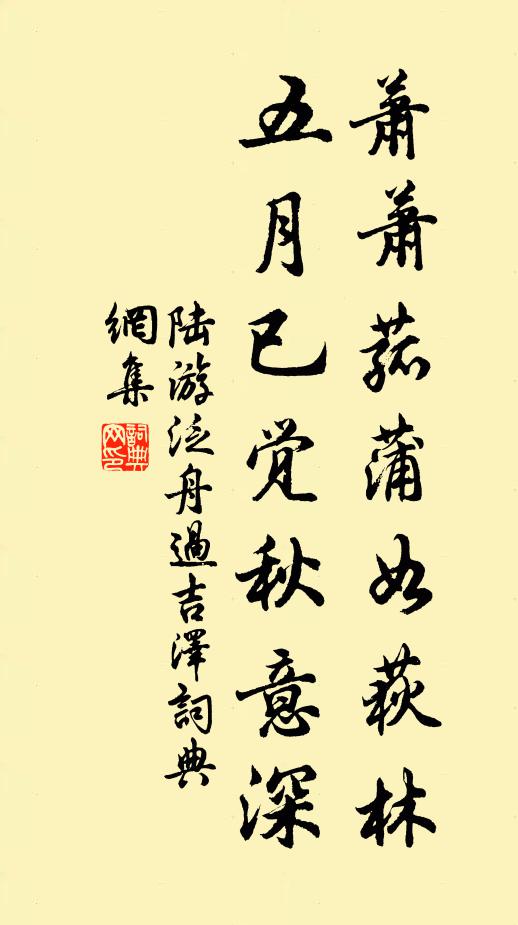 蕭蕭菰蒲如荻林
五月已觉秋意深
陆游泛舟過吉澤詞典
網集
詞典
网印